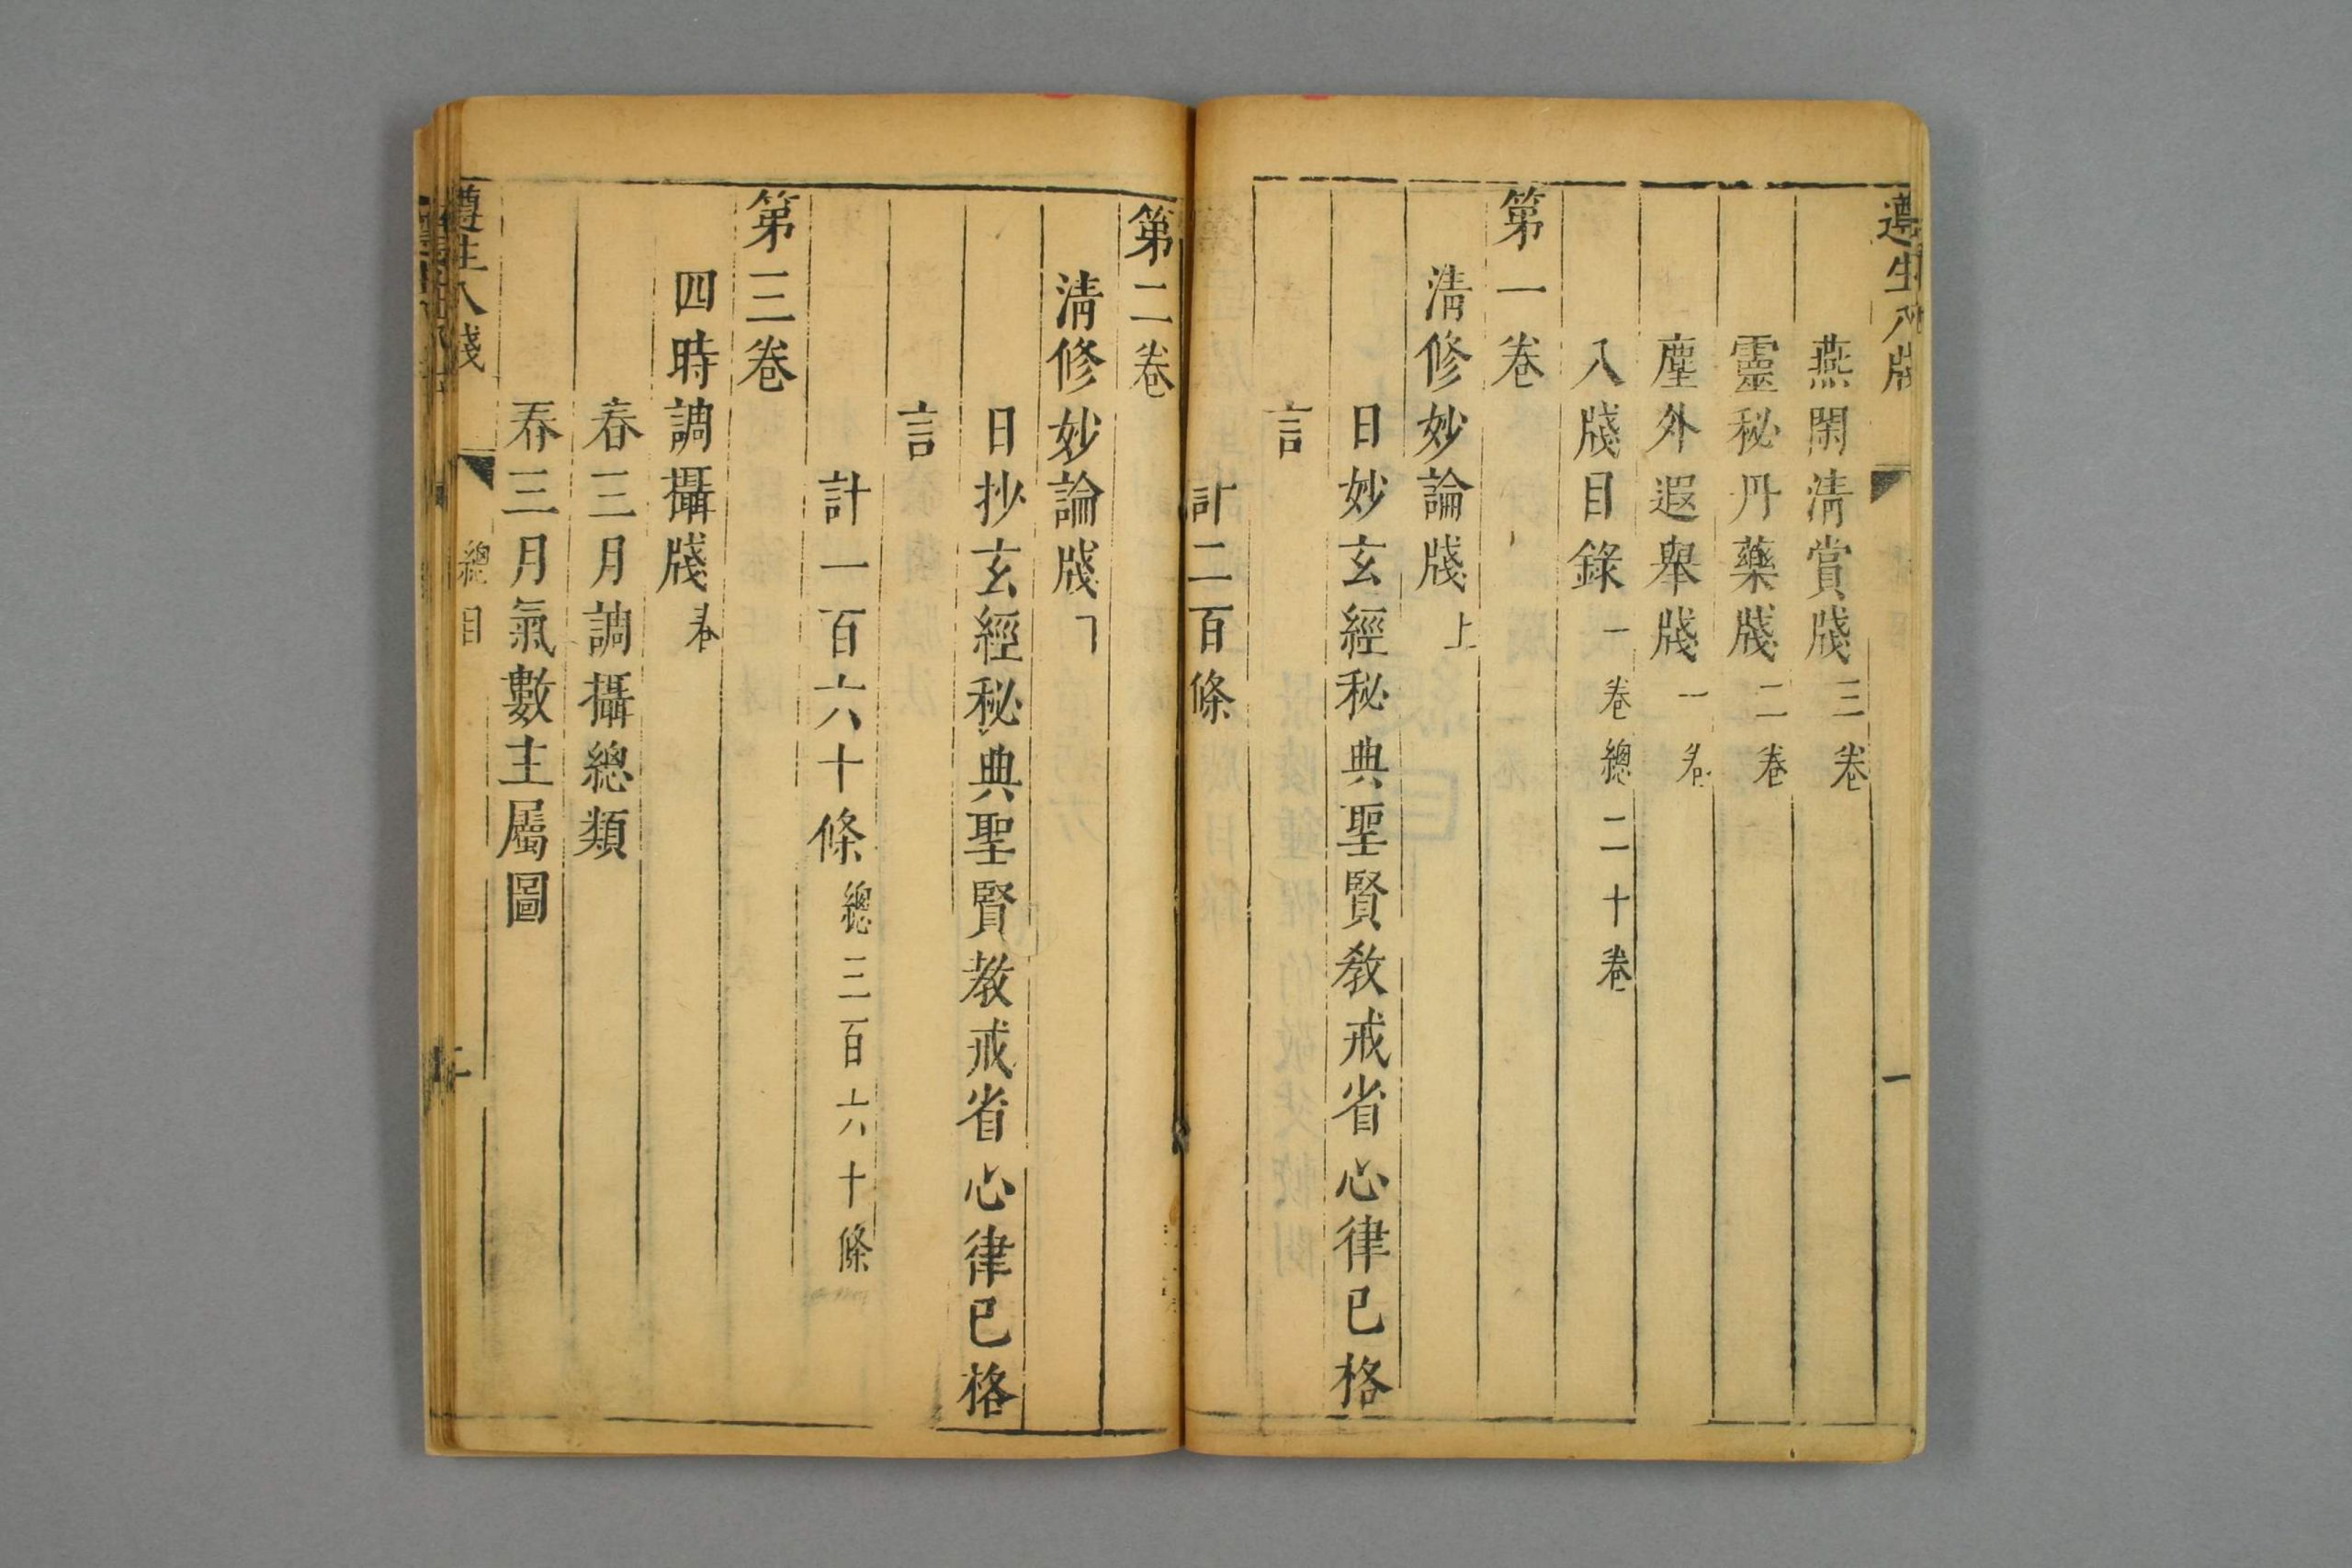 遵生八牋
一
燕閑淸賞牋三卷
靈秘丹藥牋二卷
塵外遐舉牋一卷
八牋目錄一卷總二十卷
第一卷
淸修妙論牋上
日妙玄經秘典聖賢敎戒省心律己格
言
計二百條
第二卷
淸修妙論牋下
日抄玄經秘典聖賢敎戒省心律己格
言
計一百六十條總三百六十條
第三卷
四時調攝牋春
春三月調攝總類
春三月氣數主屬圖
遵生八牋
總目
二